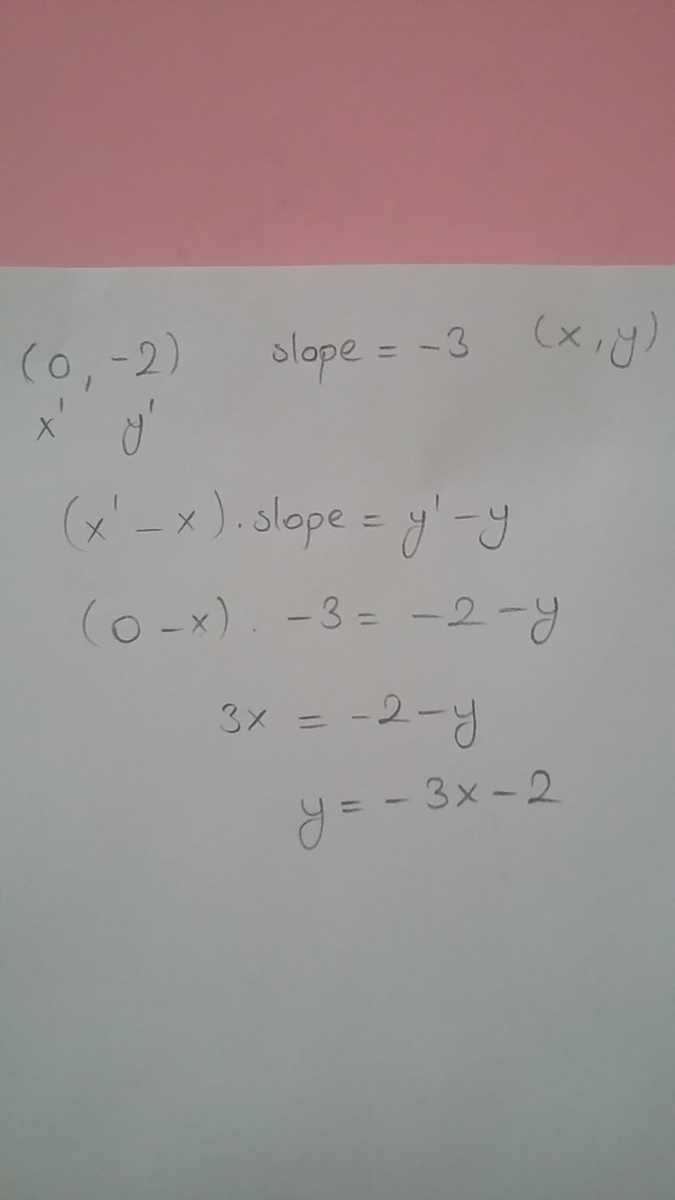 (0, -2) slope = -3 (x, y)
x' y'
(x' - x) . slope = y' - y
(0 - x) . -3 = -2 - y
3x = -2 - y
y = -3x - 2